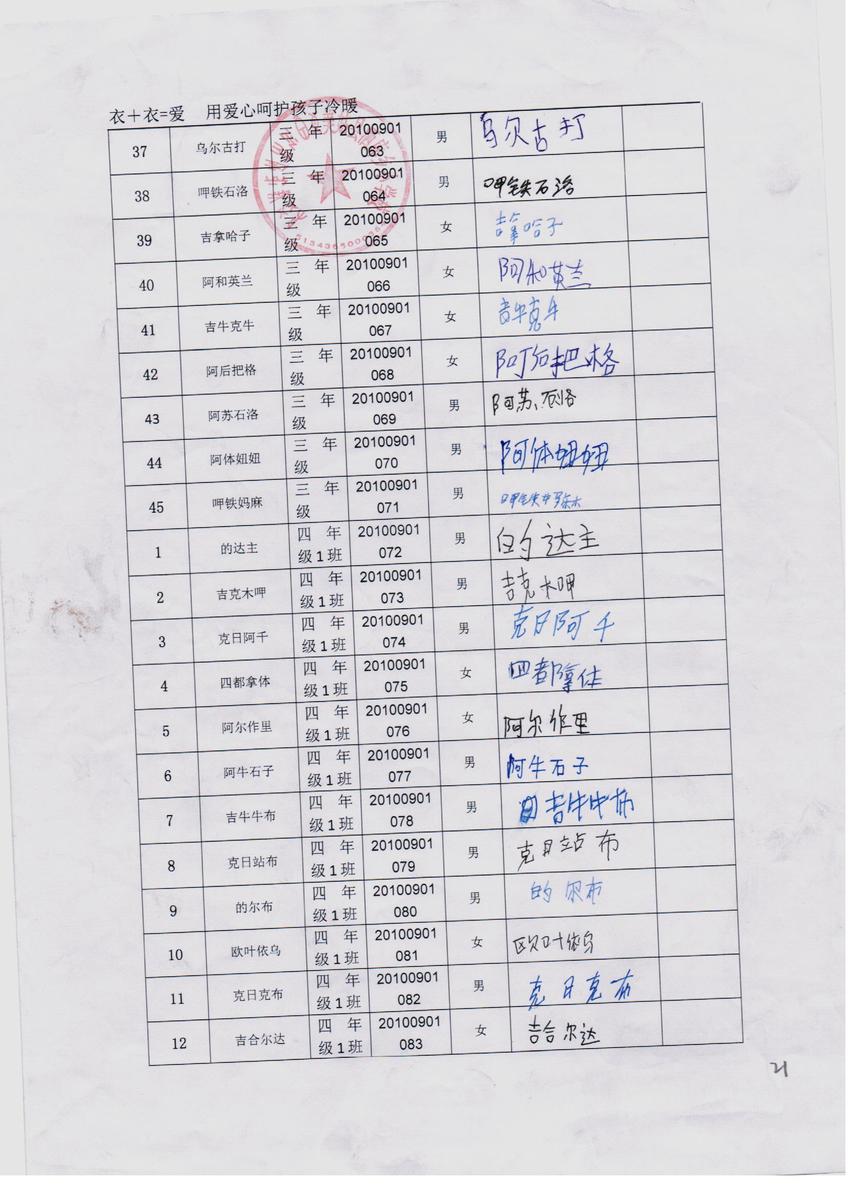 衣＋衣=爱 用爱心呵护孩子冷暖
37 乌尔古打 三年级 20100901063 男 乌尔古打
38 呷铁石洛 三年级 20100901064 男 呷铁石洛
39 吉拿哈子 三年级 20100901065 女 吉拿哈子
40 阿和英兰 三年级 20100901066 女 阿和英兰
41 吉牛克牛 三年级 20100901067 女 吉牛克牛
42 阿后把格 三年级 20100901068 女 阿后把格
43 阿苏石洛 三年级 20100901069 男 阿苏石洛
44 阿体妞妞 三年级 20100901070 男 阿体妞妞
45 呷铁妈麻 三年级 20100901071 男 呷铁
1 的达主 四年级1班 20100901072 男 的达主
2 吉克木呷 四年级1班 20100901073 男 吉克木呷
3 克日阿千 四年级1班 20100901074 男 克日阿千
4 四都拿体 四年级1班 20100901075 女 四都拿体
5 阿尔作里 四年级1班 20100901076 女 阿尔作里
6 阿牛石子 四年级1班 20100901077 男 阿牛石子
7 吉牛牛布 四年级1班 20100901078 男 吉牛牛布
8 克日站布 四年级1班 20100901079 男 克日站布
9 的尔布 四年级1班 20100901080 男 的尔布
10 欧叶依乌 四年级1班 20100901081 女 欧叶依乌
11 克日克布 四年级1班 20100901082 男 克日克布
12 吉合尔达 四年级1班 20100901083 女 吉合尔达
21